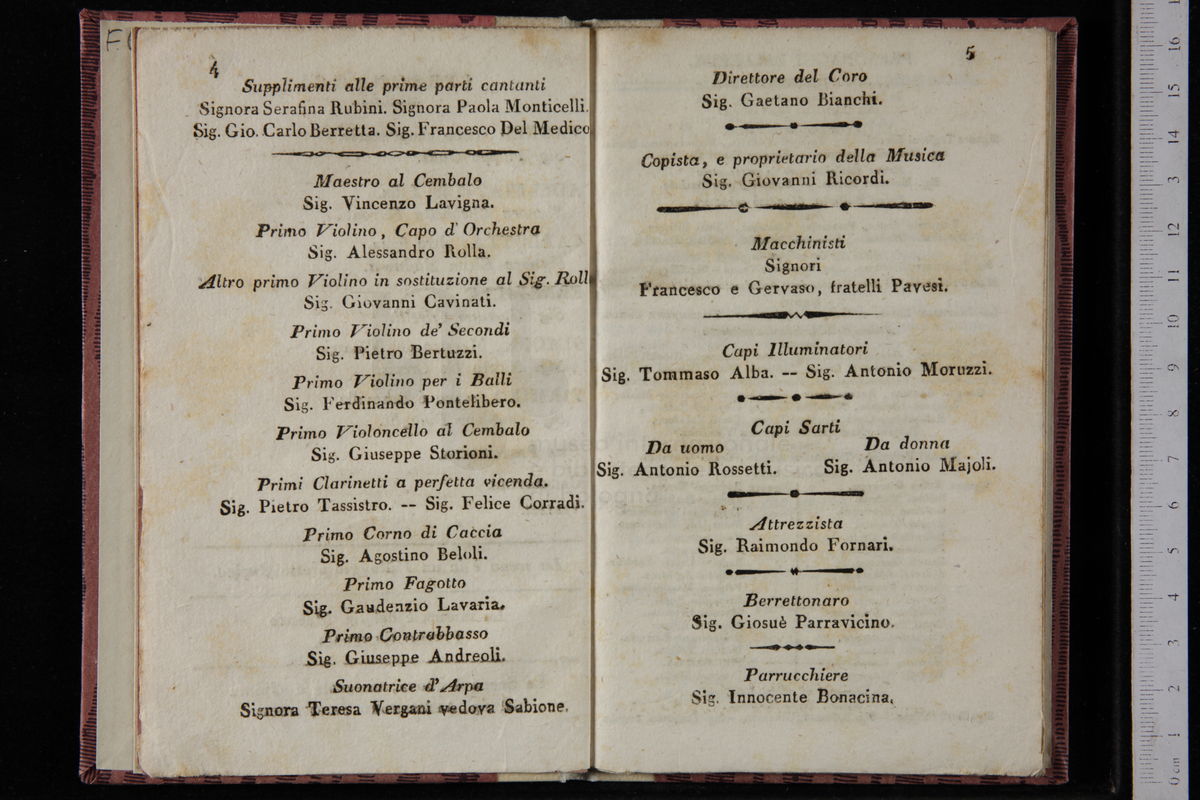 4
Supplimenti alle prime parti cantanti
Signora Serafina Rubini. Signora Paola Monticelli.
Sig. Gio. Carlo Berretta. Sig. Francesco Del Medico
Maestro al Cembalo
Sig. Vincenzo Lavigna.
Primo Violino, Capo d'Orchestra
Sig. Alessandro Rolla.
Altro primo Violino in sostituzione al Sig. Roll
Sig. Giovanni Cavinati.
Primo Violino de' Secondi
Sig. Pietro Bertuzzi.
Primo Violino per i Balli
Sig. Ferdinando Pontelibero.
Primo Violoncello al Cembalo
Sig. Giuseppe Storioni.
Primi Clarinetti a perfetta vicenda.
Sig. Pietro Tassistro. -- Sig. Felice Corradi.
Primo Corno di Caccia
Sig. Agostino Beloli.
Primo Fagotto
Sig. Gaudenzio Lavaria.
Primo Contrabbasso
Sig. Giuseppe Andreoli.
Suonatrice d'Arpa
Signora Teresa Vergani vedova Sabione.
5
Direttore del Coro
Sig. Gaetano Bianchi.
Copista, e proprietario della Musica
Sig. Giovanni Ricordi.
Macchinisti
Signori
Francesco e Gervaso, fratelli Pavesi.
Capi Illuminatori
Sig. Tommaso Alba. -- Sig. Antonio Moruzzi.
Capi Sarti
Da uomo Da donna
Sig. Antonio Rossetti. Sig. Antonio Majoli.
Attrezzista
Sig. Raimondo Fornari.
Berrettonaro
Sig. Giosuè Parravicino.
Parrucchiere
Sig. Innocente Bonacina.
16
15
14
13
12
11
10
9
8
7
6
5
4
3
2
1
0 cm